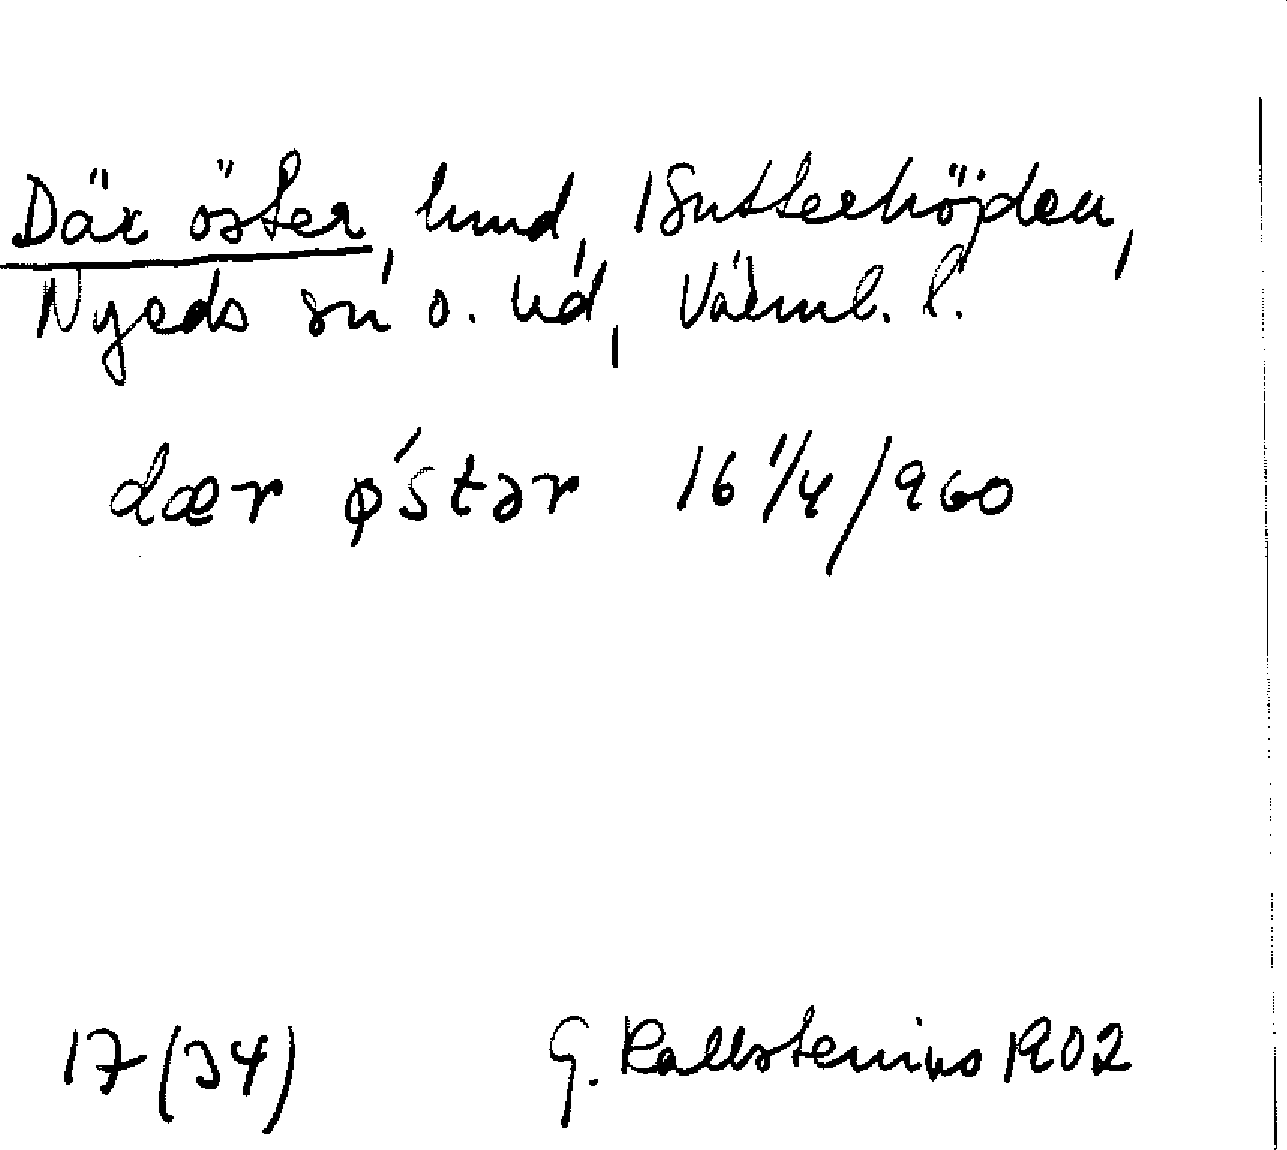 Där öster, hmd, Butterhöjden,
Nyeds sn o. hd, Värml. l.
dær ø´stər 16 1/4/960
17(34) G. Kallstenius 1902